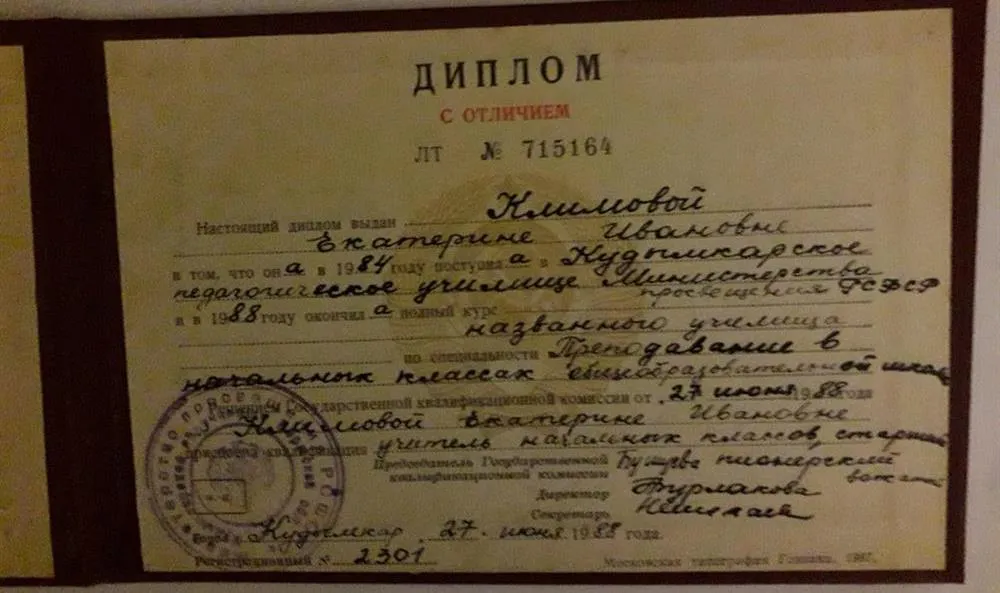 ДИПЛОМ
С ОТЛИЧИЕМ
ЛТ № 715164
Настоящий диплом выдан Климовой
Екатерине Ивановне
в том, что она в 1984 году поступила в Кудымкарское
педагогическое училище Министерства
просвещения РСФСР
и в 1988 году окончила полный курс
названного училища
по специальности Преподавание в
начальных классах общеобразовательной школы
Решением Государственной квалификационной комиссии от 27 июня 1988 года
Климовой Екатерине Ивановне
присвоена квалификация учитель начальных классов, старший
пионерский
вожатый
Председатель Государственной
квалификационной комиссии
Директор Турлакова
Секретарь
Город Кудымкар 27 июня 1988 года.
Регистрационный № 2301
Московская типография Гознака. 1987.